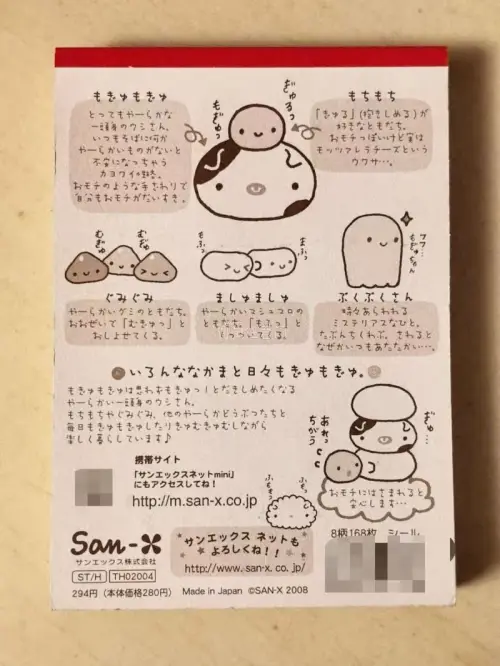 もきゅもきゅ
とってもやーらかな
一頭身のウシさん。
いつもそばに何か
やーらかいものがないと
不安になっちゃう
カヨワイ性格。
おモチのような手ざわりで
自分もおモチがだいすき。
もぎゅっ
ぎゅるっ
もちもち
「きゅる」(抱きしめる)が
好きなともだち。
おモチっぽいけど実は
モッツァレラチーズという
ウワサ…。
むぎゅ
むぎゅ
ぐみぐみ
やーらかいグミのともだち。
おおぜいで「むきゅっ」と
おしよせてくる。
もふっ
まふっ
ましゅましゅ
やーらかいマシュマロの
ともだち。「もふっ」と
くっついてくる。
ぷくぷくさん
時々あらわれる
ミステリアスなひと。
たぷんちくわぶ。さわると
なぜかいつもあたたかい…。
いろんななかまと日々もきゅもきゅ。
もきゅもきゅは思わずもきゅっ!とだきしめたくなる
やーらかい一頭身のウシさん。
もちもちやぐみぐみ、他のやーらかどうぶつたちと
毎日もきゅもきゅしたりきゅむきゅむしながら
楽しく暮らしています♪
ぎゅ…
あれっ
ちがう
おモチにはさまれると
安心します…
携帯サイト
「サンエックスネットmini」
にもアクセスしてね!
http://m.san-x.co.jp
サンエックス ネットも
よろしくね!!
http://www.san-x.co.jp/
8柄168枚 シール
San-X
サンエックス株式会社
ST/H TH02004
294円(本体価格280円) Made in Japan ©SAN-X 2008